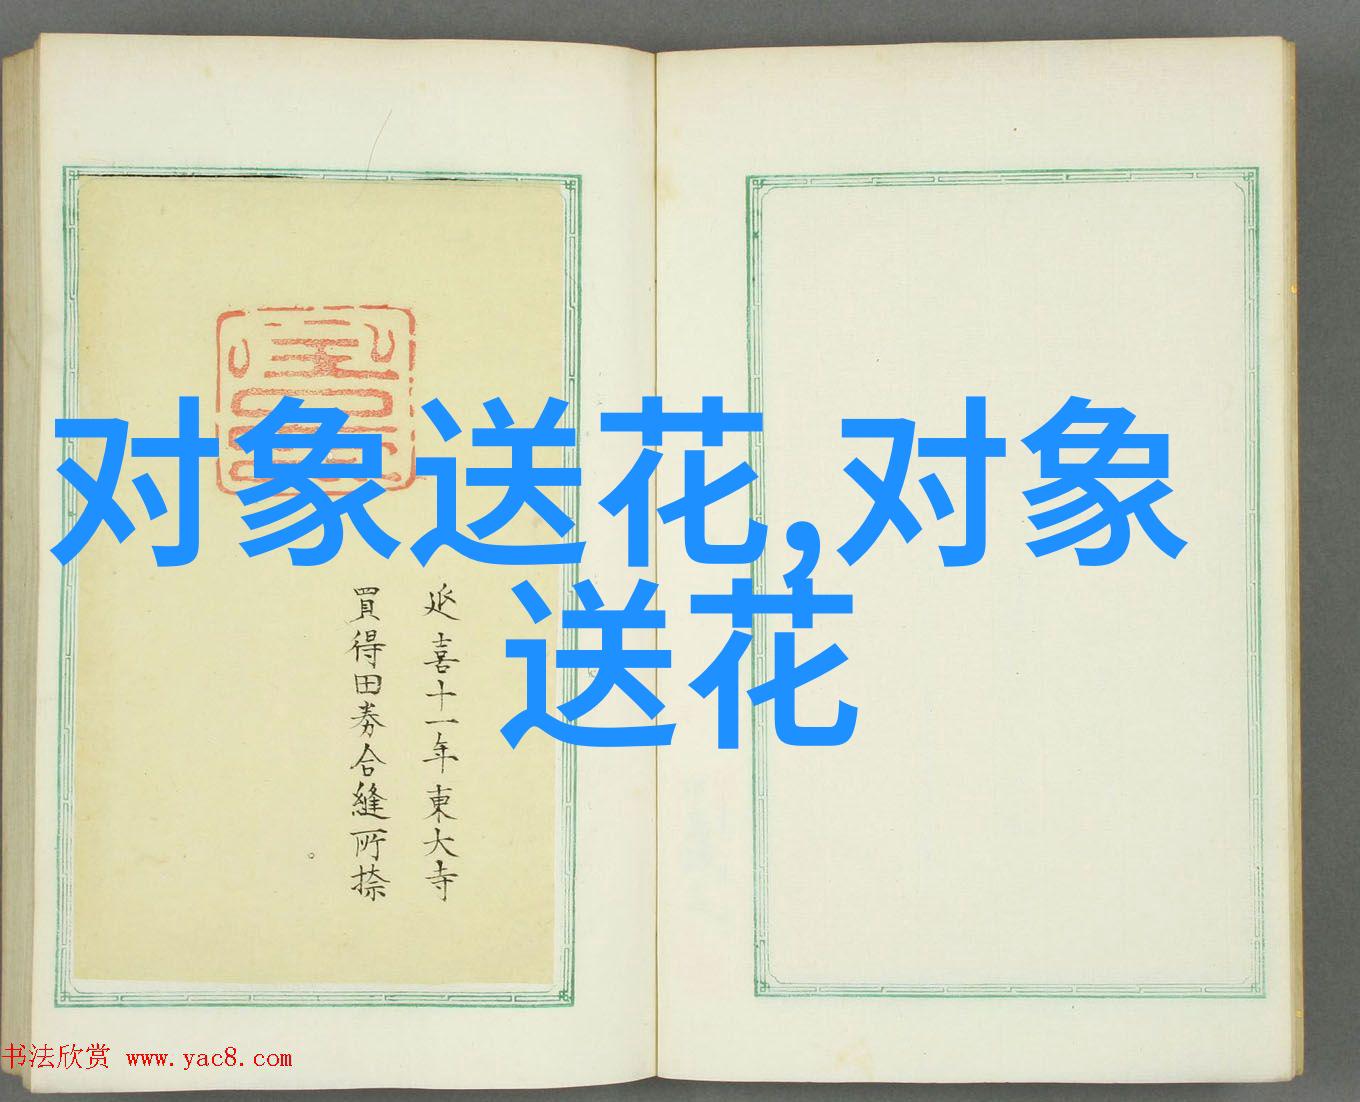 对象送花,对象
送花
延喜十一年東大寺
買得田券合縫所捺
书法欣赏 www.yac8.com